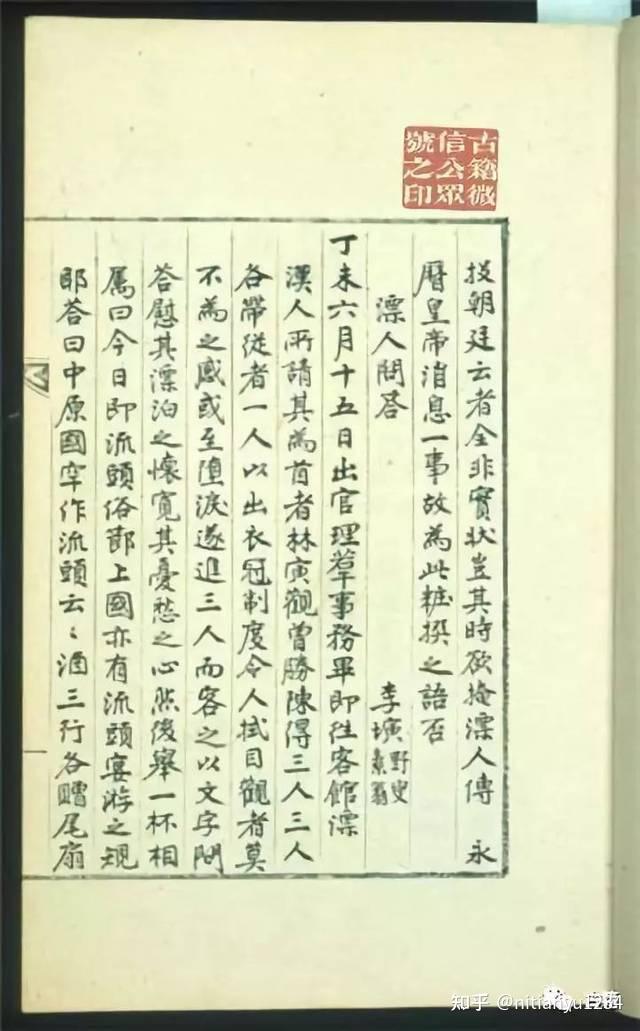 古籍微
信公眾
號之印
投朝廷云者全非實狀豈其時欲掩漂人傳 永
曆皇帝消息一事故為此粧撰之語否
漂人問答 李㙆野史
丁未六月十五日出官理羣事務畢即往客館漂
漢人所請其為首者林寅觀曾勝陳得三人三人
各帶從者一人以出衣冠制度令人拭目觀者莫
不為之感或至墮淚遂進三人而客之以文字問
答慰其漂泊之懷寬其憂愁之心然後舉一杯相
屬曰今日即流頭俗節上國亦有流頭宴游之規
耶答曰中原國罕作流頭云〻酒三行各贈尾扇
知乎 @nitianyu1234